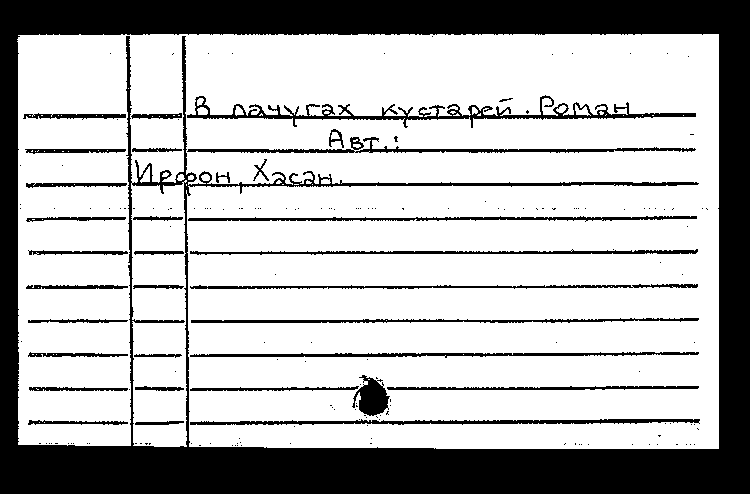 В лачугах кустарей. Роман
Авт.:
Ирфон, Хасан.